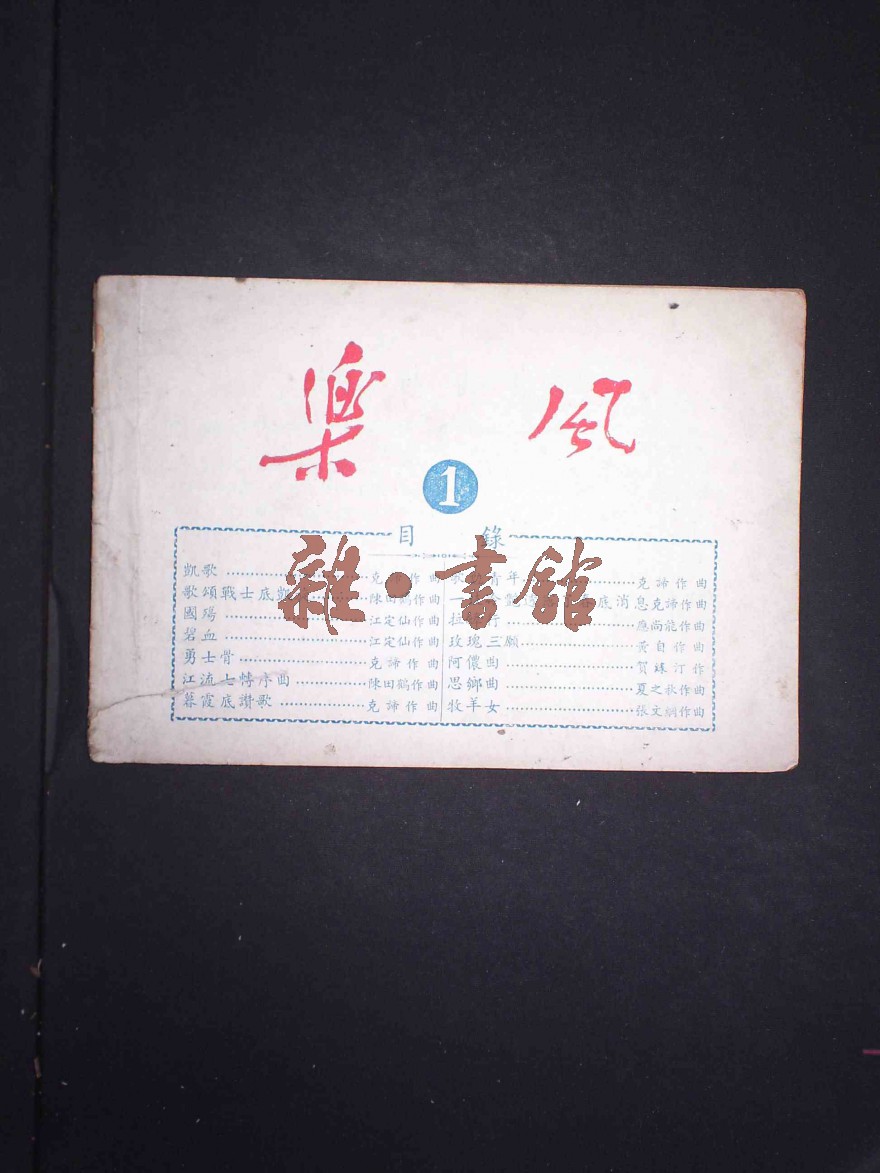 樂風
1
目錄
凱歌……克諦作曲
歌頌戰士底凱……陳田鶴作曲
國殤……江定仙作曲
碧血……江定仙作曲
勇士骨……克諦作曲
江流七轉序曲……陳田鶴作曲
暮霞底讃歌……克諦作曲
青年……克諦作曲
底消息克諦作曲
行……應尚能作曲
玫瑰三願……黃自作曲
阿儂曲……賀綠汀作
思鄉曲……夏之秋作曲
牧羊女……張文綱作曲
雜·書館